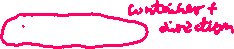 container +
direction